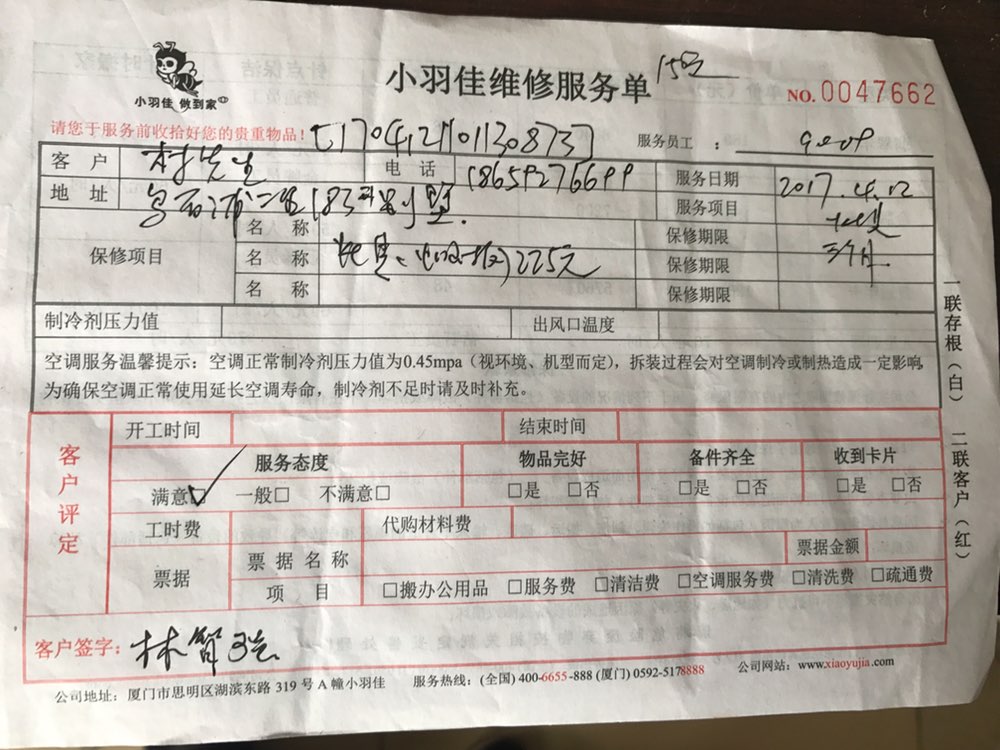 小羽佳 做到家
小羽佳维修服务单
NO.0047662
请您于服务前收拾好您的贵重物品！
服务员工 ：
客 户 电 话 18659276699 服务日期 2017.4.12
地 址 服务项目
保修项目 名 称 保修期限
名 称 225元 保修期限 三个月
名 称 保修期限
制冷剂压力值 出风口温度
空调服务温馨提示：空调正常制冷剂压力值为0.45mpa（视环境、机型而定），拆装过程会对空调制冷或制热造成一定影响，
为确保空调正常使用延长空调寿命，制冷剂不足时请及时补充。
客户评定
开工时间 结束时间
服务态度 物品完好 备件齐全 收到卡片
满意☑ 一般□ 不满意□ □是 □否 □是 □否 □是 □否
工时费 代购材料费
票据 票 据 名 称 票据金额
项 目 □搬办公用品 □服务费 □清洁费 □空调服务费 □清洗费 □疏通费
客户签字：林智
公司地址：厦门市思明区湖滨东路 319 号 A 幢小羽佳 服务热线：(全国) 400-6655-888 (厦门) 0592-5178888 公司网站：www.xiaoyujia.com
一联存根（白） 二联客户（红）